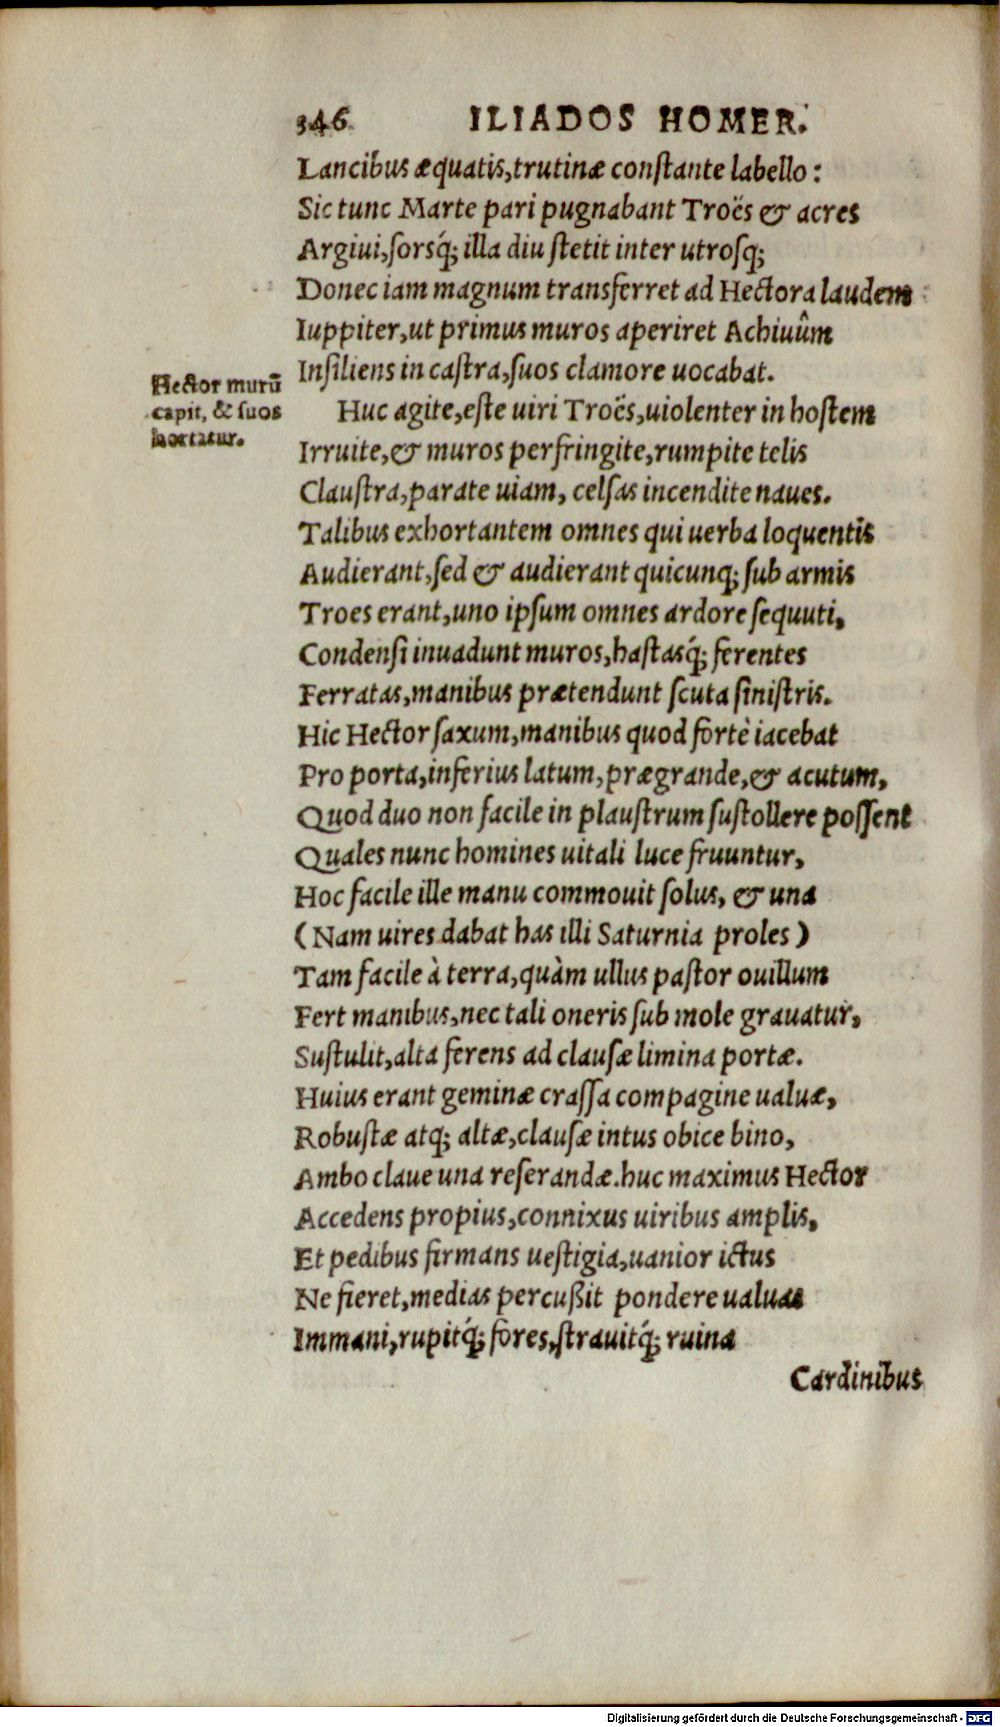 346 ILIADOS HOMER.
Lancibus æquatis, trutinæ constante labello:
Sic tunc Marte pari pugnabant Troës & acres
Argiui, sorsq́; illa diu stetit inter utrosq;
Donec iam magnum transferret ad Hectora laudem
Iuppiter, ut primus muros aperiret Achiuûm
Insiliens in castra, suos clamore uocabat.
Hector murũ
capit, & suos
hortatur.
Huc agite, este uiri Troës, uiolenter in hostem
Irruite, & muros perfringite, rumpite telis
Claustra, parate uiam, celsas incendite naues.
Talibus exhortantem omnes qui uerba loquentis
Audierant, sed & audierant quicunq; sub armis
Troes erant, uno ipsum omnes ardore sequuti,
Condensi inuadunt muros, hastasq́; ferentes
Ferratas, manibus prætendunt scuta sinistris.
Hic Hector saxum, manibus quod fortè iacebat
Pro porta, inferius latum, prægrande, & acutum,
Quod duo non facile in plaustrum sustollere possent
Quales nunc homines uitali luce fruuntur,
Hoc facile ille manu commouit solus, & una
(Nam uires dabat has illi Saturnia proles)
Tam facile à terra, quàm ullus pastor ouillum
Fert manibus, nec tali oneris sub mole grauatur,
Sustulit, alta ferens ad clausæ limina portæ.
Huius erant geminæ crassa compagine ualuæ,
Robustæ atq; altæ, clausæ intus obice bino,
Ambo claue una reserandæ. huc maximus Hector
Accedens propius, connixus uiribus amplis,
Et pedibus firmans uestigia, uanior ictus
Ne fieret, medias percußit pondere ualuas
Immani, rupitq́; fores, strauitq́; ruina
Cardinibus
Digitalisierung gefördert durch die Deutsche Forschungsgemeinschaft - DFG